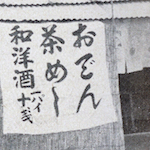 おでん
茶めし
和洋酒
一パイ
十銭